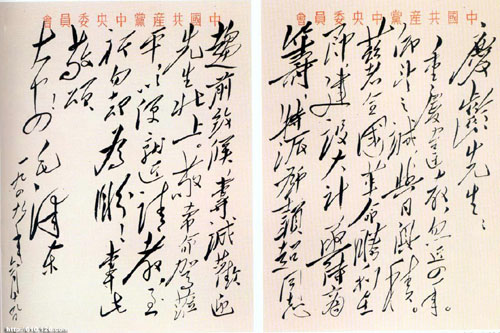 中國共產黨中央委員會
慶齡先生：
重慶違教，忽近四年。
仰望之誠，與日俱積。
兹者全國革命勝利在
即，建設大計，亟待商
籌，特派鄧穎超同志
中國共產黨中央委員會
趨前致候，專誠歡迎
先生北上。敬希命駕莅
平，以便就近請教，至
祈勿却為盼！專此
敬頌
大安！
毛澤東
一九四九年六月十九日